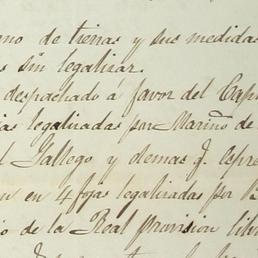 no de tierras y sus medidas
s sin legalizar.
despachado á favor del Cap
ias legalizadas por Mariño de
l Gallego y demas q. espre
n en 4 fojas legalizadas por
io de la Real provision lib